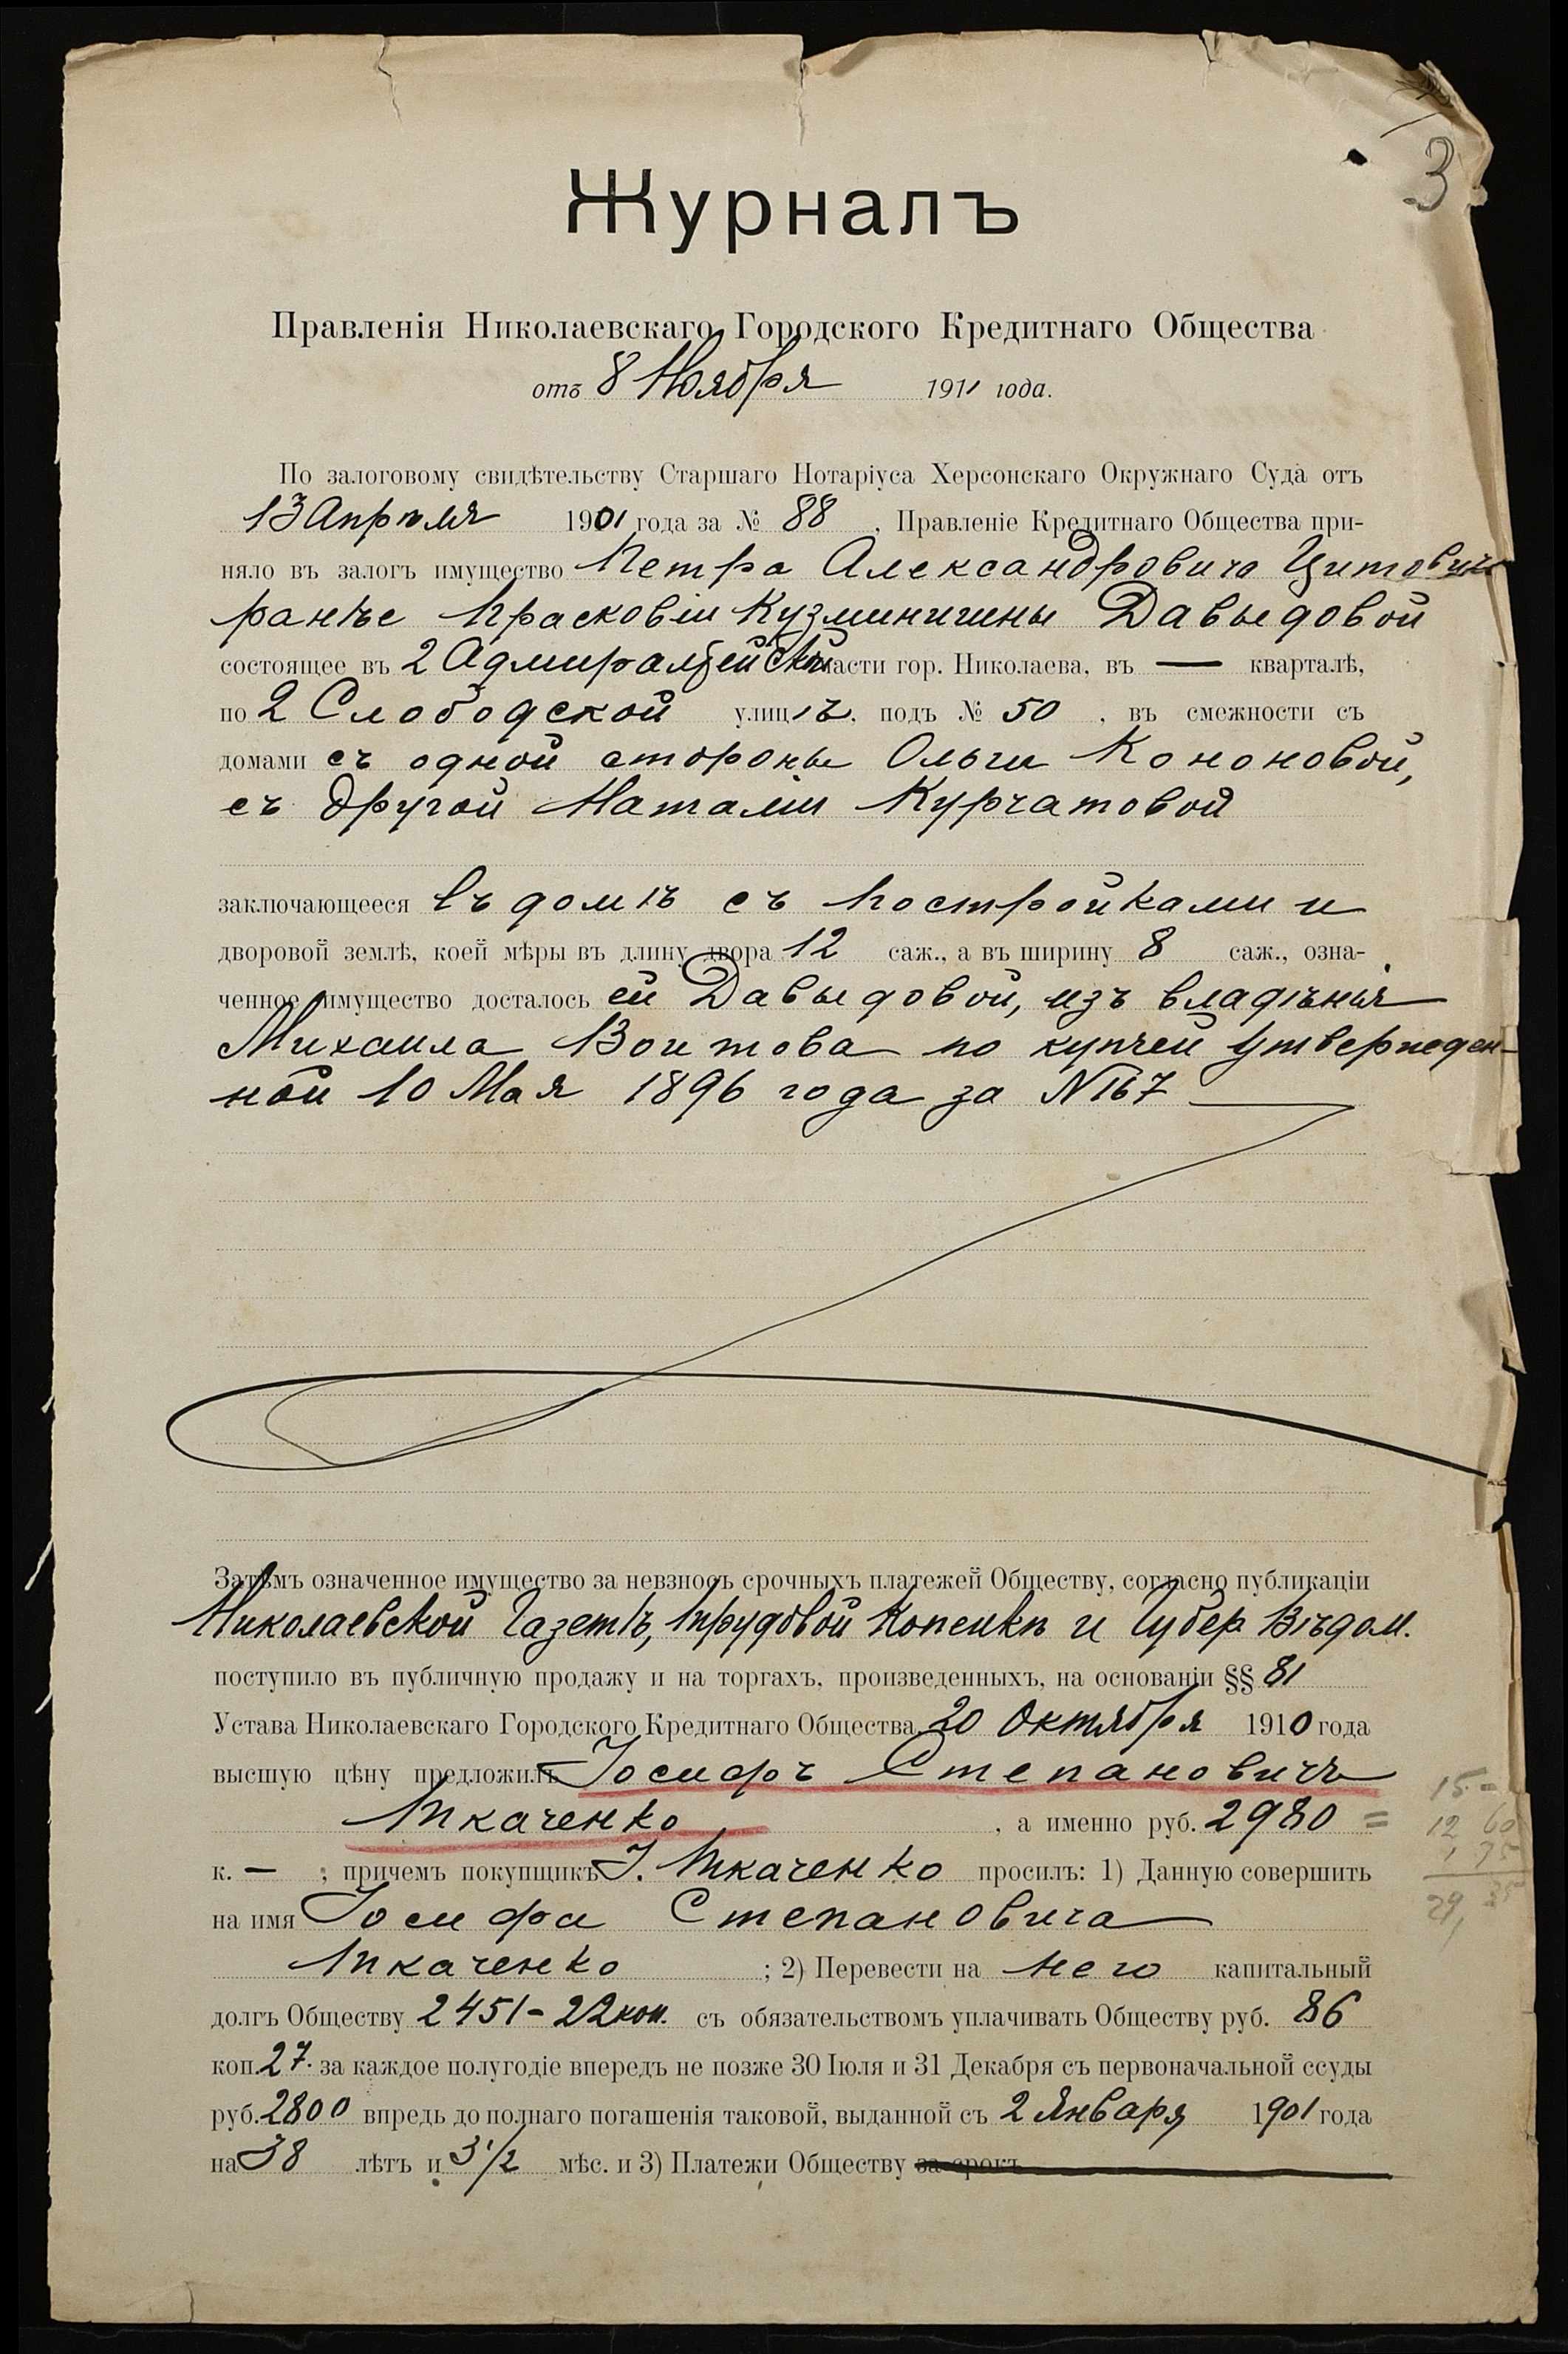 3
Журналъ
Правленія Николаевскаго Городского Кредитнаго Общества
отъ 8 Ноября 1911 года.
По залоговому свидѣтельству Старшаго Нотаріуса Херсонскаго Окружнаго Суда отъ
13 Апрѣля 1901 года за № 88 , Правленіе Кредитнаго Общества при-
няло въ залогъ имущество Петра Александровича Цитовича
ранѣе Прасковіи Кузминишны Давыдовой
состоящее въ 2 Адмиралтейской части гор. Николаева, въ — кварталѣ,
по 2 Слободской улицѣ, подъ № 50 , въ смежности съ
домами съ одной стороны Ольги Кононовой,
съ другой Наталіи Курчатовой
заключающееся въ домѣ съ постройками и
дворовой землѣ, коей мѣры въ длину двора 12 саж., а въ ширину 8 саж., озна-
ченное имущество досталось ей Давыдовой, изъ владѣнія
Михаила Воитова по купчей утвержден-
ной 10 Мая 1896 года за № 167
Затѣмъ означенное имущество за невзносъ срочныхъ платежей Обществу, согласно публикаціи
Николаевской Газетѣ, Трудовой Копейкѣ и Губер. Вѣдом.
поступило въ публичную продажу и на торгахъ, произведенныхъ, на основаніи §§ 81
Устава Николаевскаго Городского Кредитнаго Общества 20 Октября 1910 года
высшую цѣну предложилъ Іосифъ Степановичъ
Ткаченко , а именно руб. 2980 =
к. — ; причемъ покупщикъ І. Ткаченко просилъ: 1) Данную совершить
на имя Іосифа Степановича
Ткаченко ; 2) Перевести на него капитальный
долгъ Обществу 2451 - 22 коп. съ обязательствомъ уплачивать Обществу руб. 86
коп. 27. за каждое полугодіе впередъ не позже 30 Іюля и 31 Декабря съ первоначальной ссуды
руб. 2800 впредь до полнаго погашенія таковой, выданной съ 2 Января 1901 года
на 38 лѣтъ и 3 1/2 мѣс. и 3) Платежи Обществу за срокъ
15 -
12 60